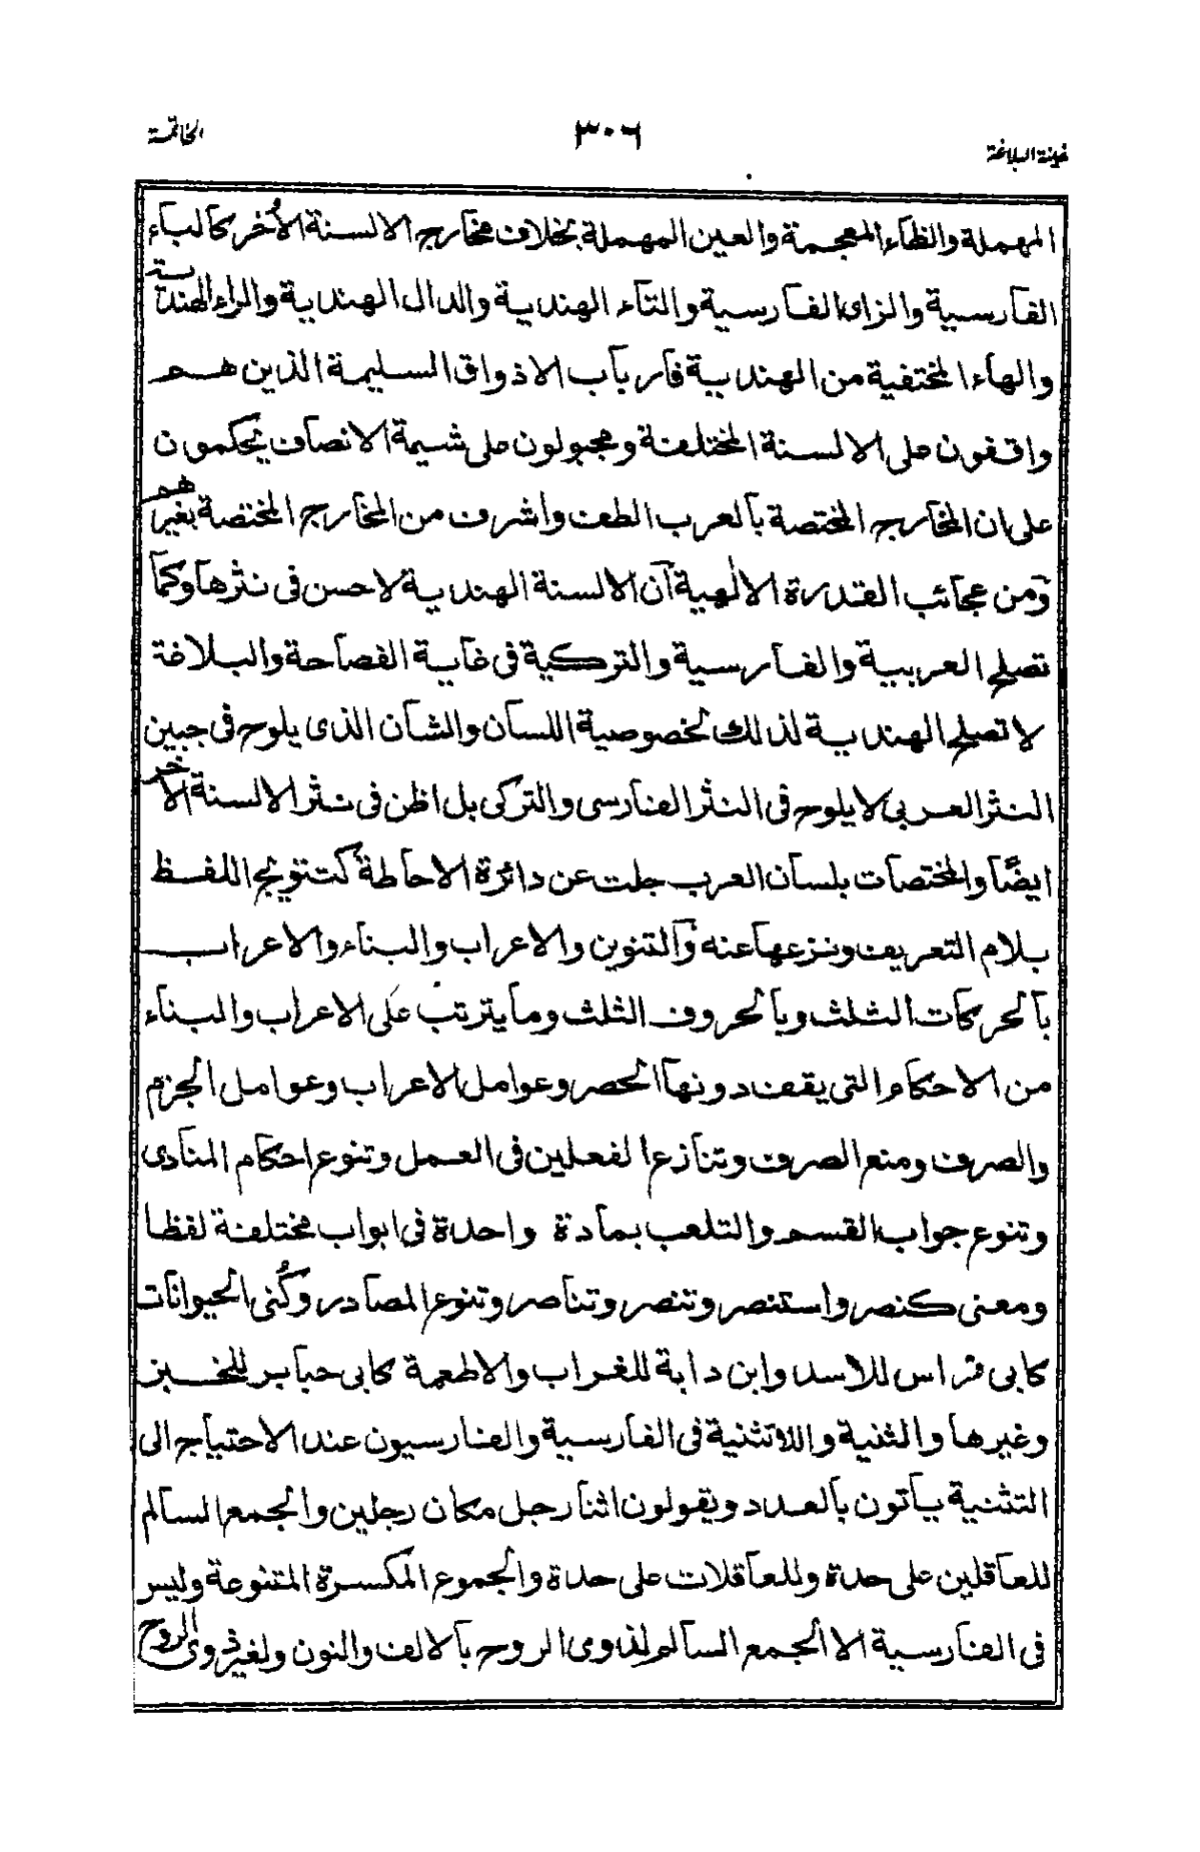 الخاتمة
٣٠٦
غينة البلاغة
المهملة والظاء المعجمة والعين المهملة بخلاف مخارج الالسنة الأُخر كالباء
الفارسية والزاى الفارسية والتاء الهندية والدال الهندية والراء الهندية
والهاء المختفية من الهندية فارباب الاذواق السليمة الذين هم
واقفون على الالسنة المختلفة ومجبولون على شيمة الانصاف يحكمون
على ان المخارج المختصة بالعرب الطف واشرف من المخارج المختصة بغيرهم
ومن عجائب القدرة الالٰهية ان الالسنة الهندية لا حسن فى نثرها وكما
تصلح العربية والفارسية والتركية فى غاية الفصاحة والبلاغة
لا تصلح الهندية لذلك لخصوصية اللسان والشان الذى يلوح فى جبين
النثر العربى لا يلوح فى النثر الفارسى والتركى بل اظن فى نثر الالسنة الأخر
ايضًا والمختصات بلسان العرب جلت عن دائرة الاحاطة كتتويج اللفظ
بلام التعريف ونزعها عنه والتنوين والاعراب والبناء والاعراب
بالحركات الثلث وبالحروف الثلث وما يترتب على الاعراب والبناء
من الاحكام التى يقف دونها الحصر وعوامل الاعراب وعوامل الجزم
والصرف ومنع الصرف وتنازع الفعلين فى العمل وتنوع احكام المنادى
وتنوع جواب القسم والتلعب بمادة واحدة فى ابواب مختلفة لفظا
ومعنى كنصر واستنصر وتنصر وتناصر وتنوع المصادر وكُنى الحيوانات
كابى فراس للاسد وابن داية للغراب والاطعمة كابى جابر للخبز
وغيرها والثنية واللاتثنية فى الفارسية والفارسيون عند الاحتياج الى
التثنية ياتون بالعدد ويقولون اثنا رجل مكان رجلين والجمع السالم
للعاقلين على حدة وللعاقلات على حدة والجموع المكسرة المتنوعة وليس
فى الفارسية الا الجمع السالم لذوى الروح بالالف والنون ولغير ذوى الروح